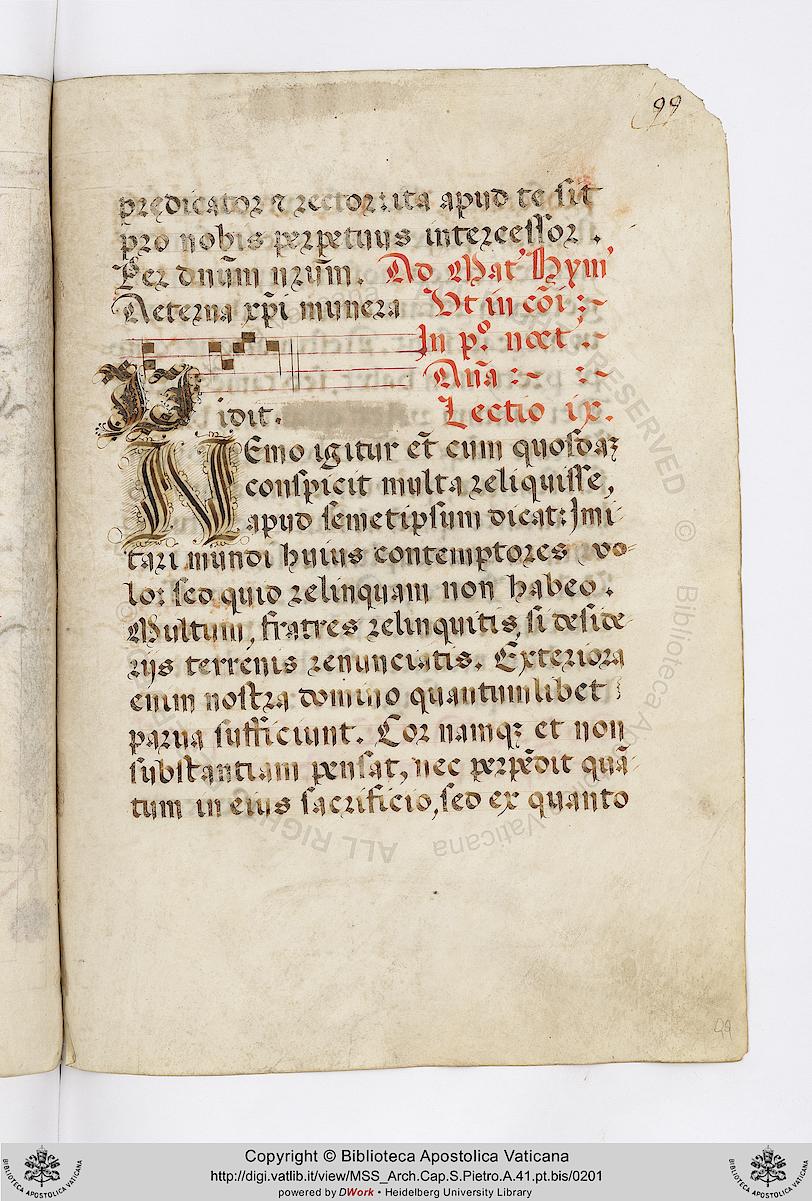 99
predicator ⁊ rector: ita apud te sit
pro nobis perpetuus intercessor.
Per dnūm nrūm. Ad Mat' Hym'
Aeterna xp̄i munera Vt in cōi:~
In p.º noct.
Anā :~ :~
Vidit. Lectio ix.
NEmo igitur et̄ cum quosdaꝫ
conspicit multa reliquisse,
apud semetipsum dicat: Imi
tari mundi huius contemptores vo-
lo: sed quid relinquam non habeo.
Multum, fratres relinquitis, si deside-
rijs terrenis renunciatis. Exteriora
enim nostra domino quantumlibet
parua sufficiunt. Cor namqꝫ et non
substantiam pensat, nec perpēdit quā-
tum in eius sacrificio, sed ex quanto
99
RESERVED © Biblioteca Apostolica Vaticana
ALL RIGHTS
Copyright © Biblioteca Apostolica Vaticana
http://digi.vatlib.it/view/MSS_Arch.Cap.S.Pietro.A.41.pt.bis/0201
powered by DWork • Heidelberg University Library
BIBLIOTECA APOSTOLICA VATICANA
BIBLIOTECA APOSTOLICA VATICANA